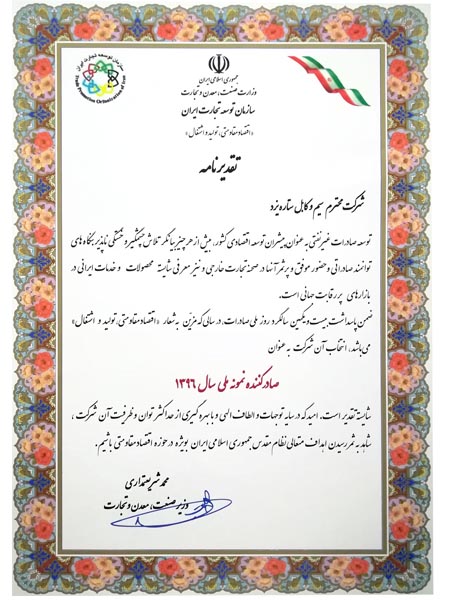 سازمان توسعه تجارت ایران
Trade Promotion Organization of Iran
جمهوری اسلامی ایران
وزارت صنعت، معدن و تجارت
سازمان توسعه تجارت ایران
«اقتصاد مقاومتی، تولید و اشتغال»
تقدیرنامه
شرکت محترم سیم و کابل ستاره یزد
توسعه صادرات غیرنفتی به عنوان پیشران توسعه اقتصادی کشور، بیش از هر چیز بیانگر تلاش چشمگیر و خستگی ناپذیر بنگاه های
توانمند صادراتی و حضور موفق و پرثمر آنها در صحنه تجارت خارجی و نیز معرفی شایسته محصولات و خدمات ایرانی در
بازارهای پررقابت جهانی است.
ضمن پاسداشت بیست و یکمین سالگرد روز ملی صادرات، در سالی که مزین به شعار «اقتصاد مقاومتی، تولید و اشتغال»
می باشد، انتخاب آن شرکت به عنوان
صادرکننده نمونه ملی سال ۱۳۹۶
شایسته تقدیر است. امید که در سایه توجهات و الطاف الهی و با بهره گیری از حداکثر توان و ظرفیت آن شرکت،
شاهد به ثمر رسیدن اهداف متعالی نظام مقدس جمهوری اسلامی ایران بویژه در حوزه اقتصاد مقاومتی باشیم.
محمد شریعتمداری
وزیر صنعت، معدن و تجارت